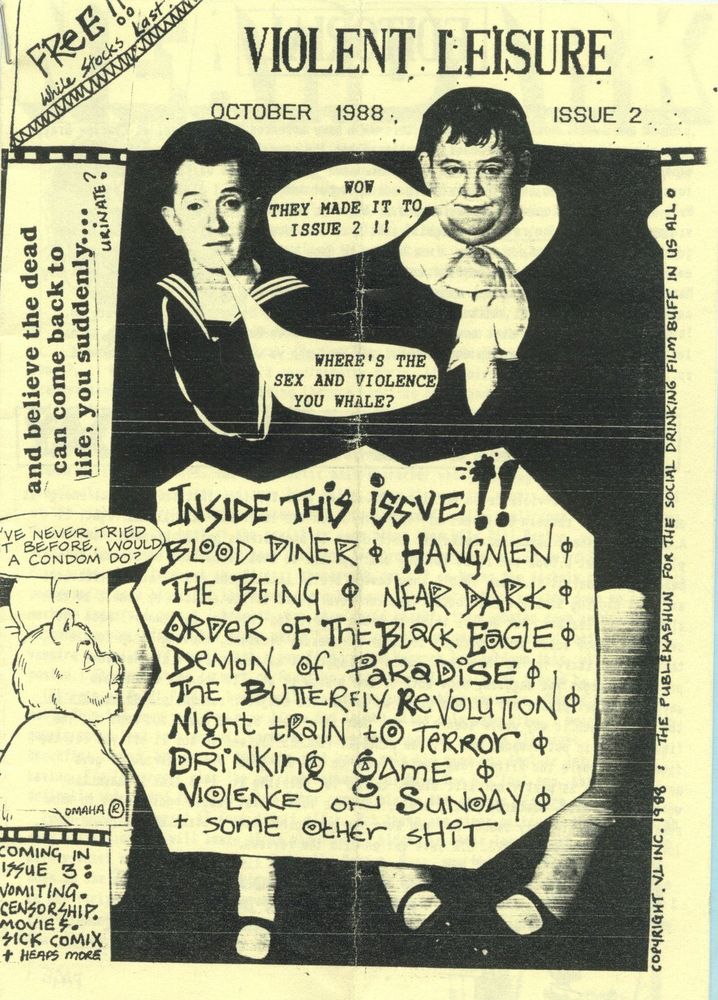 FREE!!
While Stocks Last
VIOLENT LEISURE
OCTOBER 1988
ISSUE 2
WOW
THEY MADE IT TO
ISSUE 2 !!
WHERE'S THE
SEX AND VIOLENCE
YOU WHALE?
and believe the dead
can come back to
life, you suddenly....
URINATE?
'VE NEVER TRIED
T BEFORE. WOULD
A CONDOM DO?
OMAHA ®
INSIDE THIS ISSUE!!
BLOOD DINER ϕ HANGMEN ϕ
THE BEING ϕ NEAR DARK ϕ
ORDER OF THE BLACK EAGLE ϕ
DEMON OF PARADISE ϕ
THE BUTTERFLY REVOLUTION ϕ
NIGHT TRAIN TO TERROR ϕ
DRINKING GAME ϕ
VIOLENCE ON SUNDAY ϕ
+ SOME OTHER SHIT
COMING IN
ISSUE 3:
VOMITING.
CENSORSHIP.
MOVIES.
SICK COMIX
+ HEAPS MORE
COPYRIGHT. VL INC. 1988 : THE PUBLEKASHUN FOR THE SOCIAL DRINKING FILM BUFF IN US ALL.